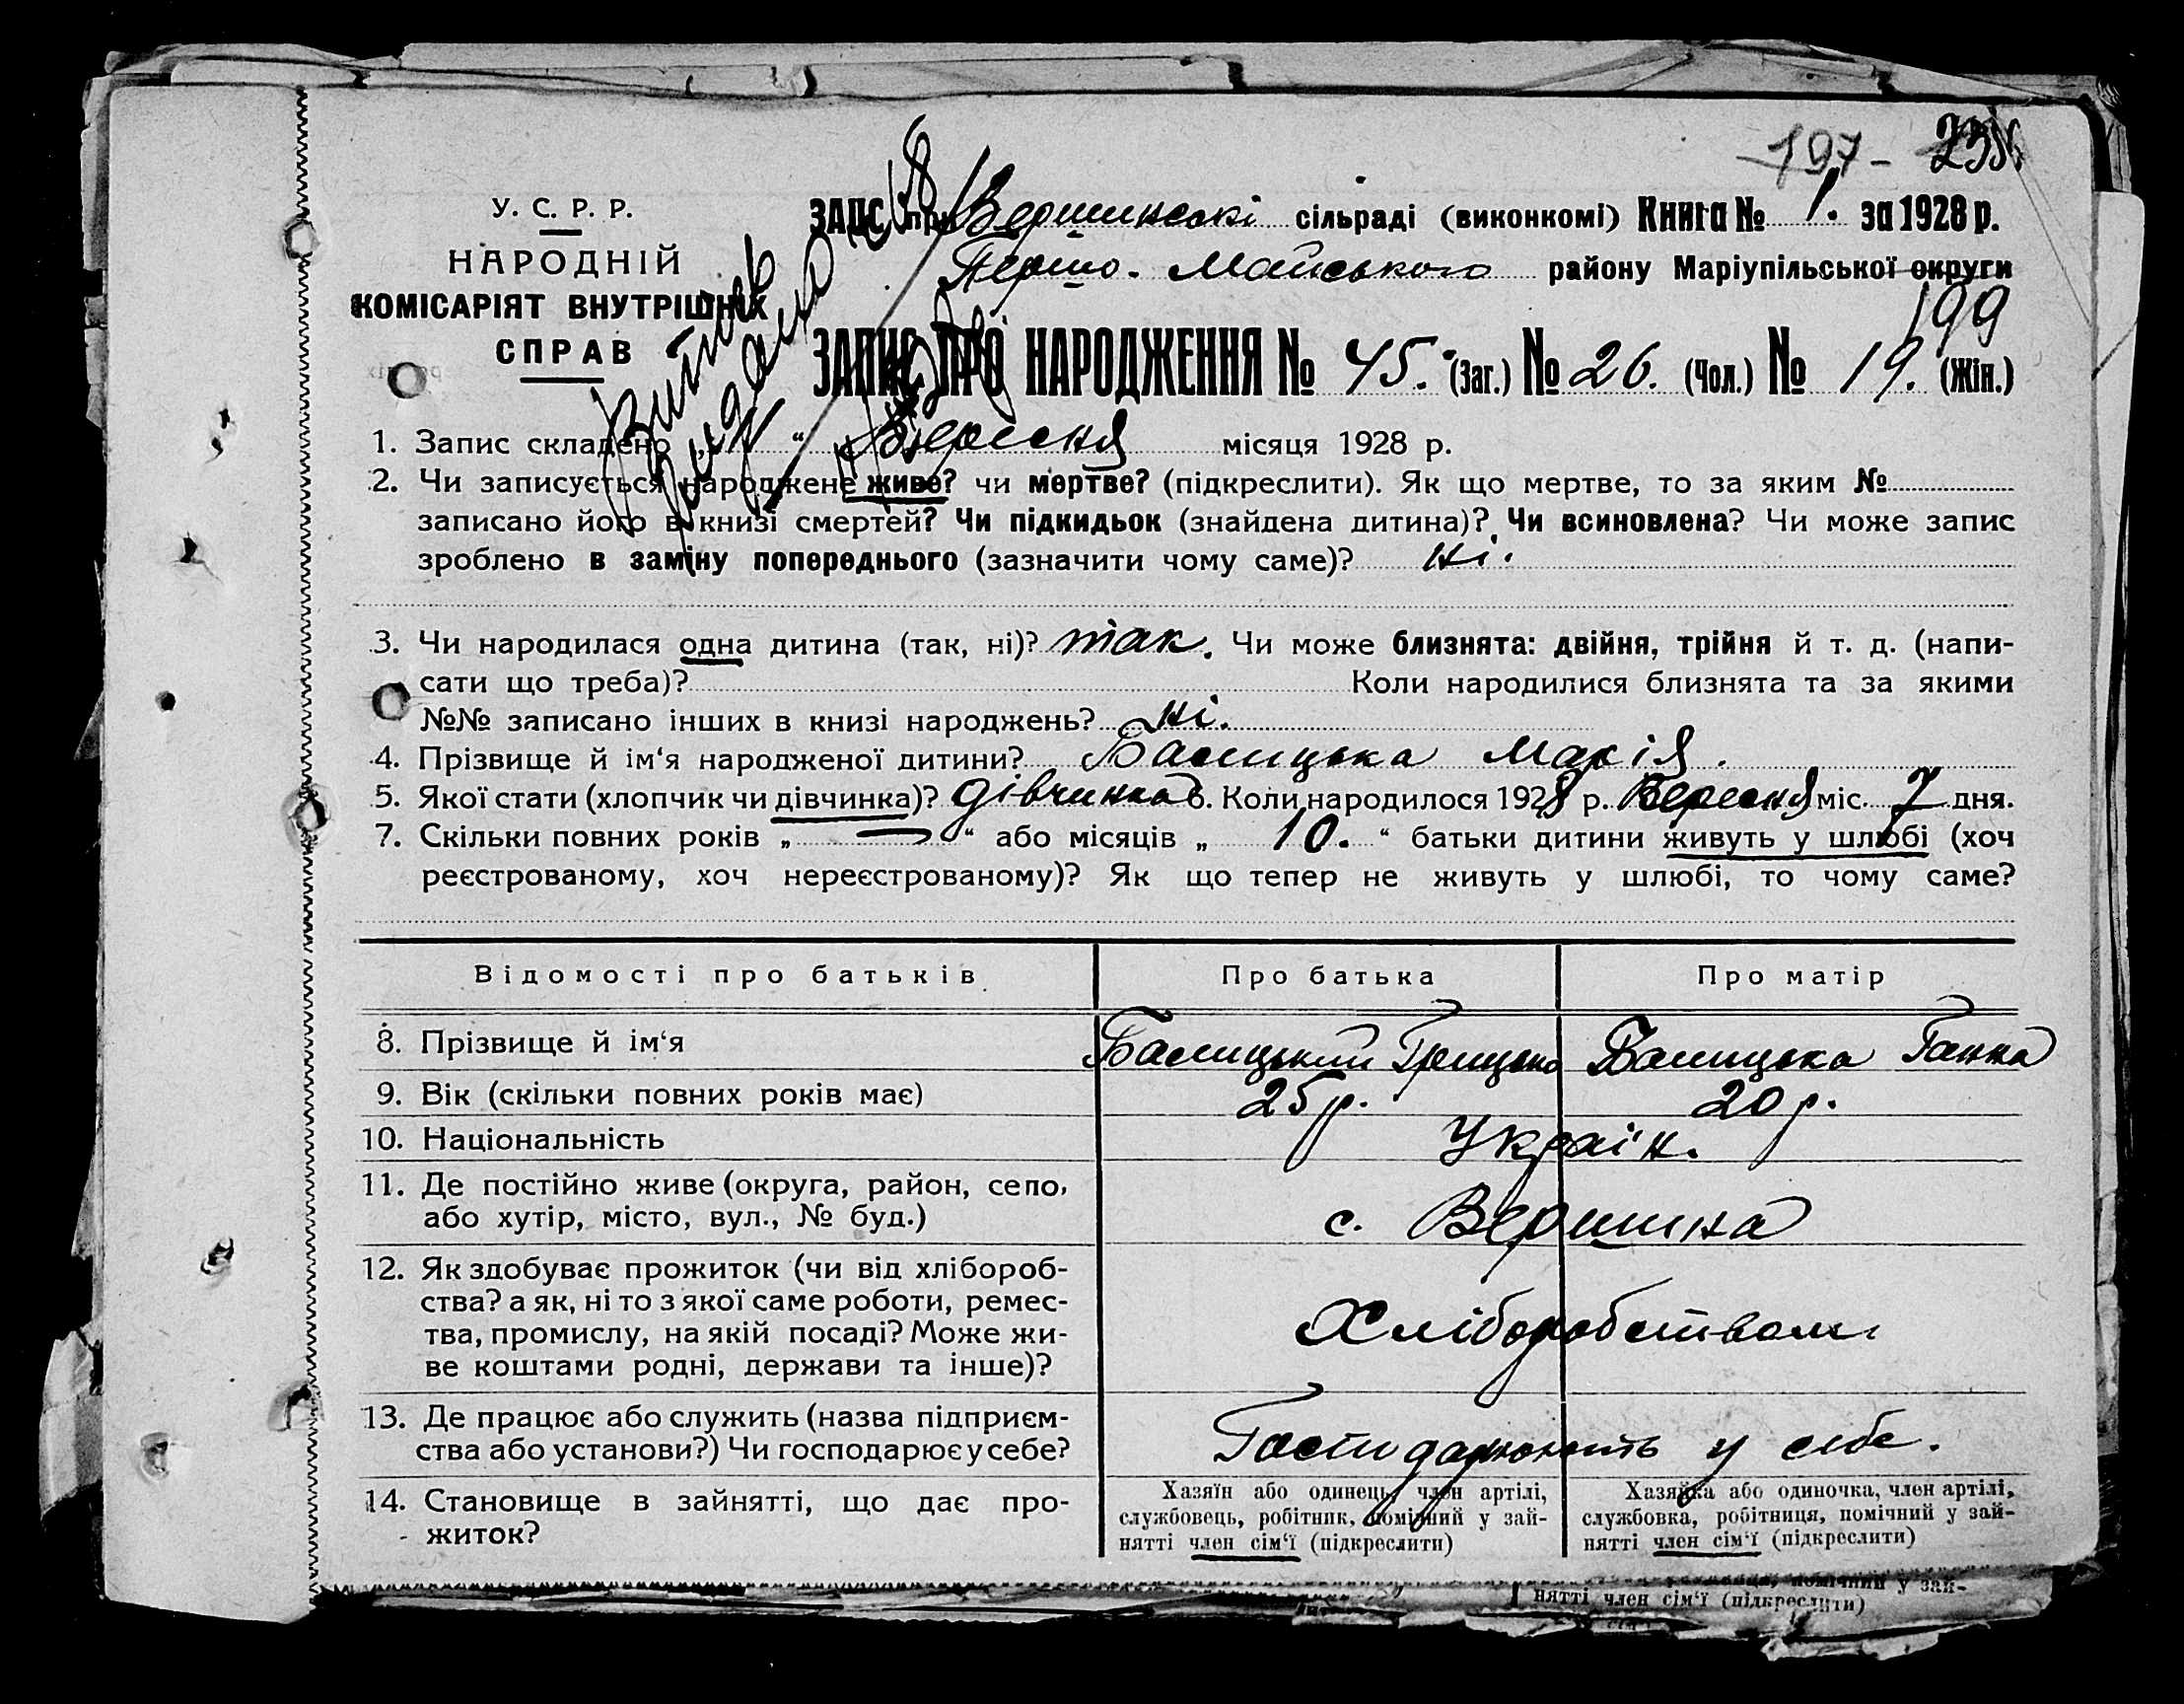 197 -
У. С. Р. Р.
НАРОДНІЙ
КОМІСАРІЯТ ВНУТРІШНІХ
СПРАВ
ЗАГС при Вершинські сільраді (виконкомі) Книга № 1. за 1928 р.
Першо-Майського району Маріупільської округи
199
ЗАПИС ПРО НАРОДЖЕННЯ № 45. (Заг.) № 26. (Чол.) № 19. (Жін.)
Витяг
видано
1. Запис складено „ “ Вересня місяця 1928 р.
2. Чи записується народжене живе? чи мертве? (підкреслити). Як що мертве, то за яким №
записано його в книзі смертей? Чи підкидьок (знайдена дитина)? Чи всиновлена? Чи може запис
зроблено в заміну попереднього (зазначити чому саме)? ні.
3. Чи народилася одна дитина (так, ні)? так. Чи може близнята: двійня, трійня й т. д. (напи-
сати що треба)? Коли народилися близнята та за якими
№№ записано інших в книзі народжень? ні.
4. Прізвище й ім‘я народженої дитини? Балицька Марія.
5. Якої стати (хлопчик чи дівчинка)? дівчинка 6. Коли народилося 1928 р. Вересня міс. 7 дня.
7. Скільки повних років „ — “ або місяців „ 10. “ батьки дитини живуть у шлюбі (хоч
реєстрованому, хоч нереєстрованому)? Як що тепер не живуть у шлюбі, то чому саме?
Відомості про батьків Про батька Про матір
8. Прізвище й ім‘я Балицький Грицько Балицька Ганна
9. Вік (скільки повних років має) 25 р. 20 р.
10. Національність Україн.
11. Де постійно живе (округа, район, село,
або хутір, місто, вул., № буд.) с. Вершина
12. Як здобуває прожиток (чи від хлібороб-
ства? а як, ні то з якої саме роботи, ремес-
тва, промислу, на якій посаді? Може жи-
ве коштами родні, держави та інше)? Хліборобством
13. Де працює або служить (назва підприєм-
ства або установи?) Чи господарює у себе? Господарюють у себе.
14. Становище в зайнятті, що дає про-
житок?
Хазяїн або одинець, член артілі,
службовець, робітник, помічний у зай-
нятті член сім‘ї (підкреслити)
Хазяйка або одиночка, член артілі,
службовка, робітниця, помічний у зай-
нятті член сім‘ї (підкреслити)
нятті член сім‘ї (підкреслити)